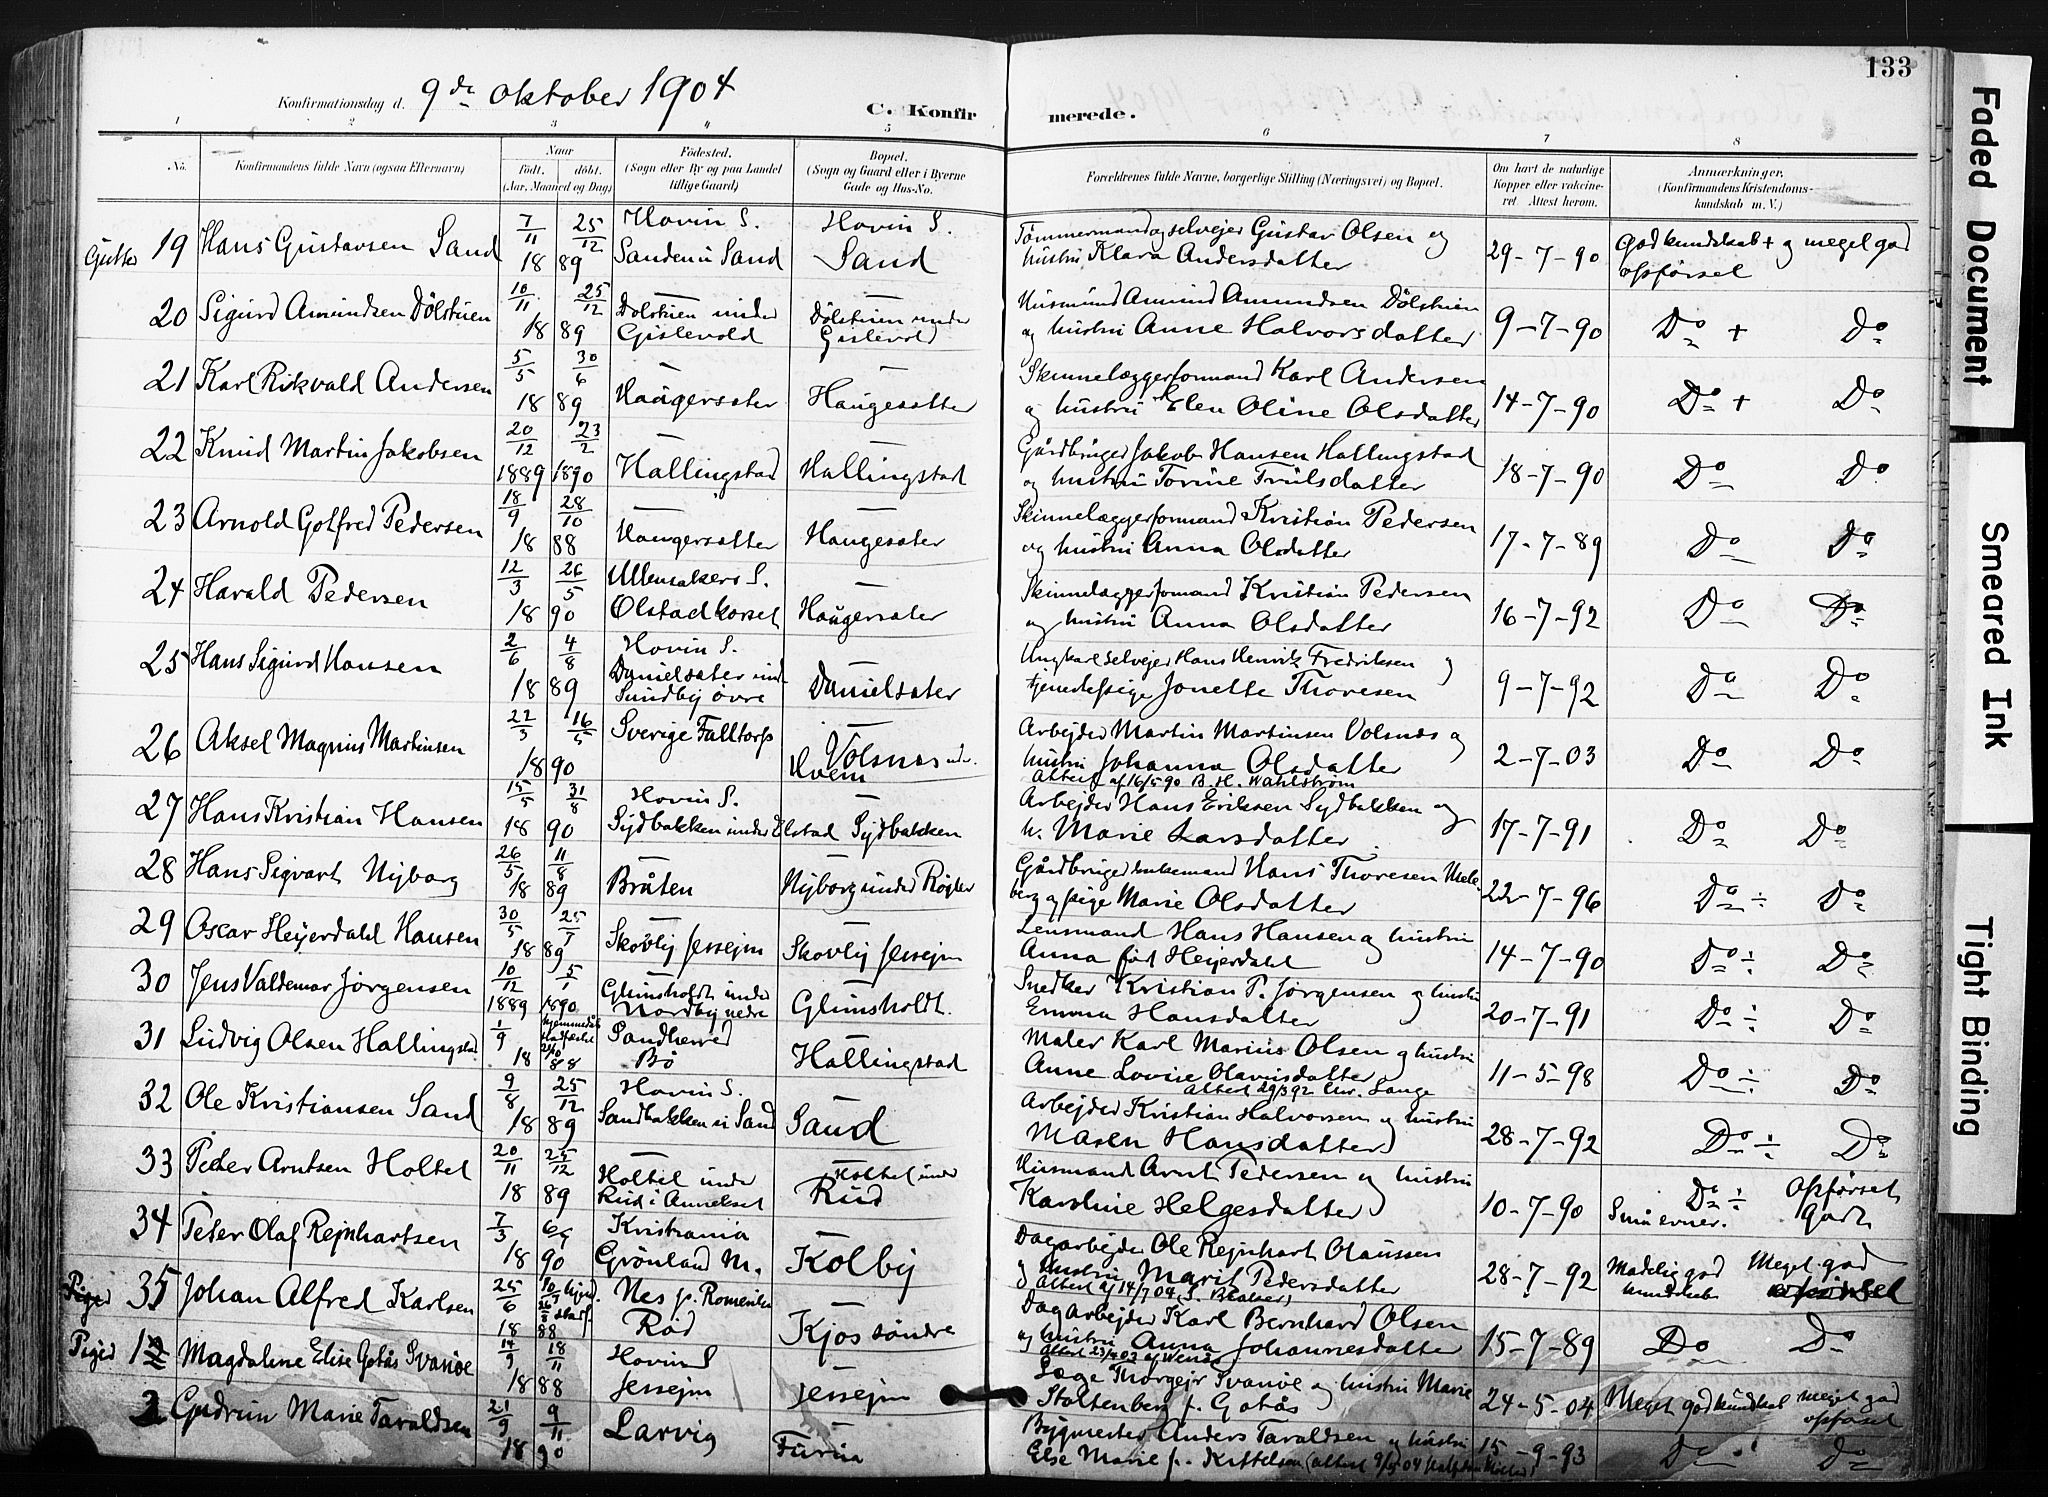 133
Konfirmationsdag d. 9de Oktober 1904
C. Konfirmerede.
1 2 3 4 5 6 7 8
No. Konfirmandens fulde Navn (ogsaa Efternavn) Naar født. døbt. (Aar, Maaned og Dag) Fødested. (Sogn eller By og paa Landet tillige Gaard) Bopæl. (Sogn og Gaard eller i Byerne Gade og Hus-No. Forældrenes fulde Navne, borgerlige Stilling (Næringsvei) og Bopæl. Om havt de naturlige Kopper eller vakcineret. Attest herom. Anmærkninger, (Konfirmandens Kristendomskundskab m. V.)
Gutter 19 Hans Gustavsen Sand 7/11 25/12 1889 Hovin S. Sanden i Sand Hovin S. Sand Tømmermand og selvejer Gustav Olsen og hustru Klara Andersdatter 29-7-90 God kundskab + og meget god opførsel
20 Sigurd Amundsen Dölstuen 10/11 25/12 1889 — Dölstuen under Gislevold — Dölstuen under Gislevold Husmand Amund Amundsen Dölstuen og hustru Anne Halvorsdatter 9-7-90 Do + Do
21 Karl Rikvald Andersen 5/5 30/6 1889 — Haugersater — Haugesatter Skinnelæggerformand Karl Andersen og hustru Elen Oline Olsdatter 14-7-90 Do + Do
22 Knud Martin Jakobsen 20/12 23/2 1889 1890 — Hallingstad — Hallingstad Gårdbruger Jakob Hansen Hallingstad og hustru Torine Trulsdatter 18-7-90 Do Do
23 Arnold Gotfred Pedersen 18/9 28/10 1888 — Haugersatter — Haugesater Skinnelæggerformand Kristian Pedersen og hustru Anna Olsdatter 17-7-89 Do Do
24 Harald Pedersen 12/3 26/5 1890 Ullensakers S. Olstadkorset — Haugersater Skinnelæggerformand Kristian Pedersen og hustru Anna Olsdatter 16-7-92 Do Do
25 Hans Sigurd Hansen 2/6 4/8 1889 Hovin S. Danielsater und. Sundby øvre — Danielsater Ungkarl selvejer Hans Henrik Fredriksen og tjenestepige Jonette Thoresen 9-7-92 Do Do
26 Aksel Magnus Martinsen 22/3 16/5 1890 Sverige Falltorp — Volsnas und. Hvem Arbejder Martin Martinsen Volsnæs og hustru Johanna Olsdatter Attest af 16/5 90 B. H. Wahlstrøm 2-7-03 Do Do
27 Hans Kristian Hansen 15/5 31/8 1890 Hovin S. Sydbakken under Elstad — Sydbakken Arbejder Hans Eriksen Sydbakken og h. Marie Larsdatter 17-7-91 Do Do
28 Hans Sigvart Nyborg 26/5 11/8 1889 — Bråten — Nyborg under Røgler Gårdbruger enkemand Hans Thoresen Melberg og pige Marie Olsdatter 22-7-96 Do ÷ Do
29 Oscar Heyerdahl Hansen 30/5 25/7 1889 — Skovly Jessejm — Skovly Jessejm Lensmand Hans Hansen og hustru Anna født Heyerdahl 14-7-90 Do ÷ Do
30 Jens Valdemar Jørgensen 10/12 5/1 1889 1890 — Glimsholdt under Nordby nedre — Glimsholdt. Snedker Kristian P. Jørgensen og hustru Emma Hansdatter 20-7-91 Do ÷ Do
31 Ludvig Olsen Hallingstad 1/9 hjemmedåb stadfæstet 1888 Sandherred Bö — Hallingstad Maler Karl Marius Olsen og hustru Anne Lovise Olavusdatter Attest 29/3 92 Chr. Lange 11-5-98 Do ÷ Do
32 Ole Kristiansen Sand 9/8 25/12 1889 Hovin S. Sandbakken i Sand — Sand Arbejder Kristian Halvorsen og hustru Maren Hansdatter 28-7-92 Do ÷ Do
33 Peder Arntsen Holtet 20/11 25/12 1889 — Holtet under Rud i Annekset — Holtet under Rud Husmand Arnt Pedersen og hustru Karoline Helgesdatter 10-7-90 Do ÷ Små evner. Opførsel God
34 Peder Olaf Rejnhartsen 7/3 6/5 1890 Kristiania Grönland M. — Kolby Dagarbejder Ole Rejnhart Olaussen og hustru Marit Pedersdatter Attest af 14/7 04 28-7-92 Mådelig god kundskab Meget god opførsel
Piger 35 Johan Alfred Karlsen 25/6 10/7 hjmd. stadf. 1888 Nes p. Romerike Röd — Kjos søndre Dagarbejder Karl Bernhard Olsen og hustru Anna Johannesdatter 15-7-89 Do Do
Piger 1 Magdalene Elise Gotås Svanöe 14/9 18/11 1888 Hovin S Jessejm — Jessejm Læge Thorgejr Svanöe og hustru Marie Stoltenberg f. Gotås 24-5-04 Meget god kundskab Meget god opførsel
2 Gudrun Marie Taraldsen 21/9 9/11 1890 Larvig — Furua Bygmester Anders Taraldsen og hustru Else Marie f. Kittelsen 15-9-93 Do Do
Faded Document
Smeared Ink
Tight Binding